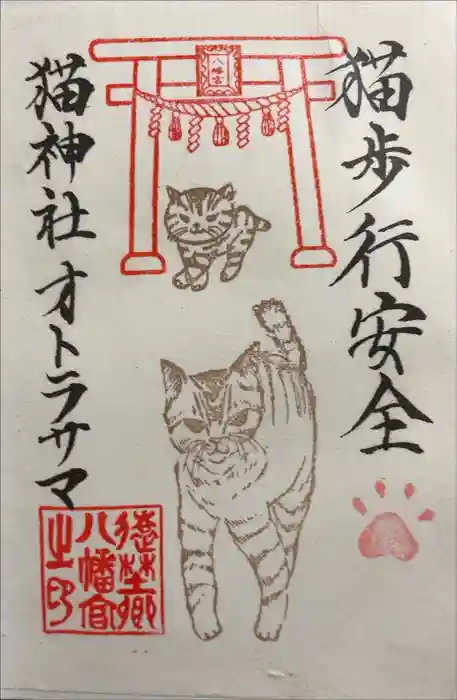 猫歩行安全
八幡宮
猫神社オトラサマ
八幡宮
之印